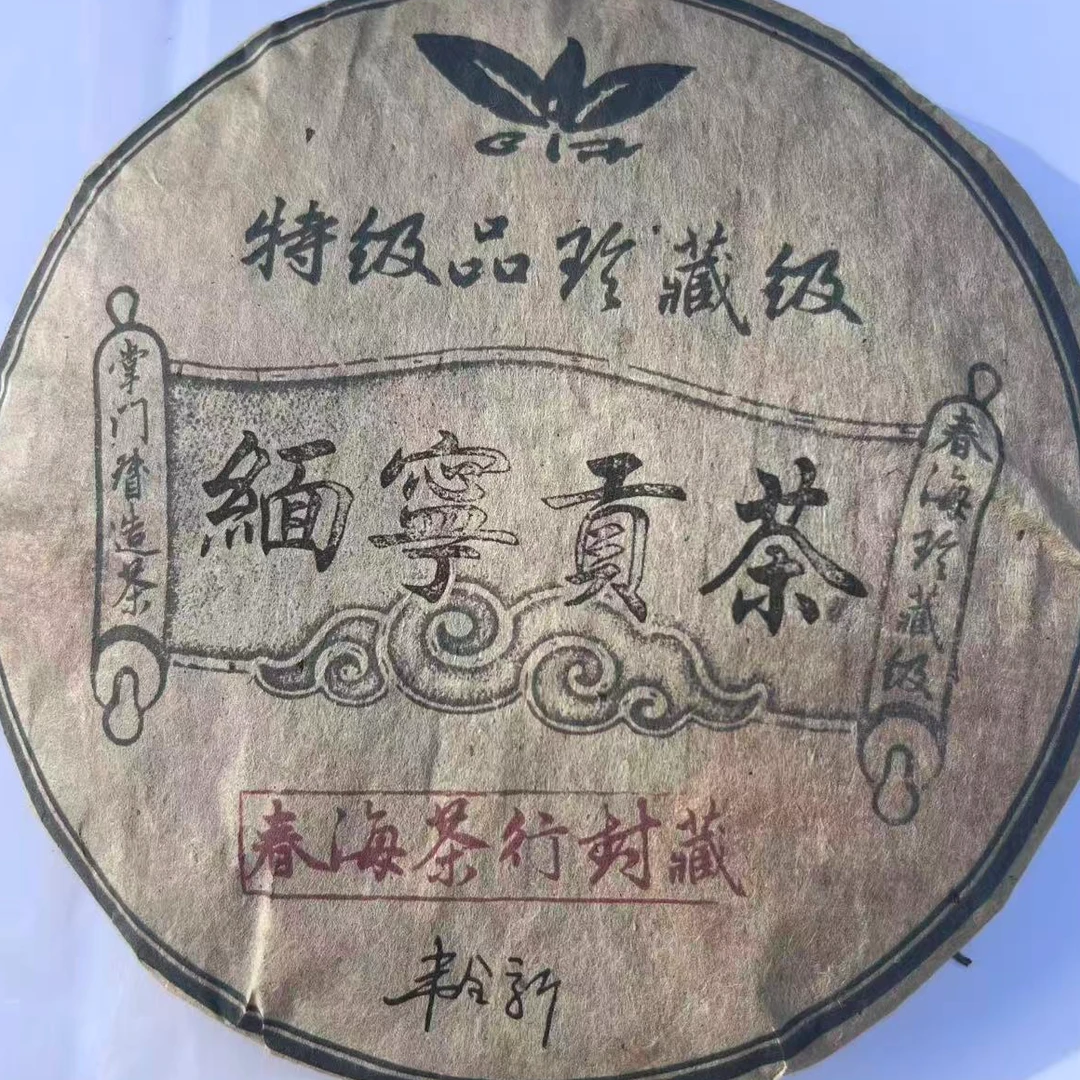 特级品珍藏级
掌门督造茶
緬寧貢茶
春海珍藏级
春海茶行封藏